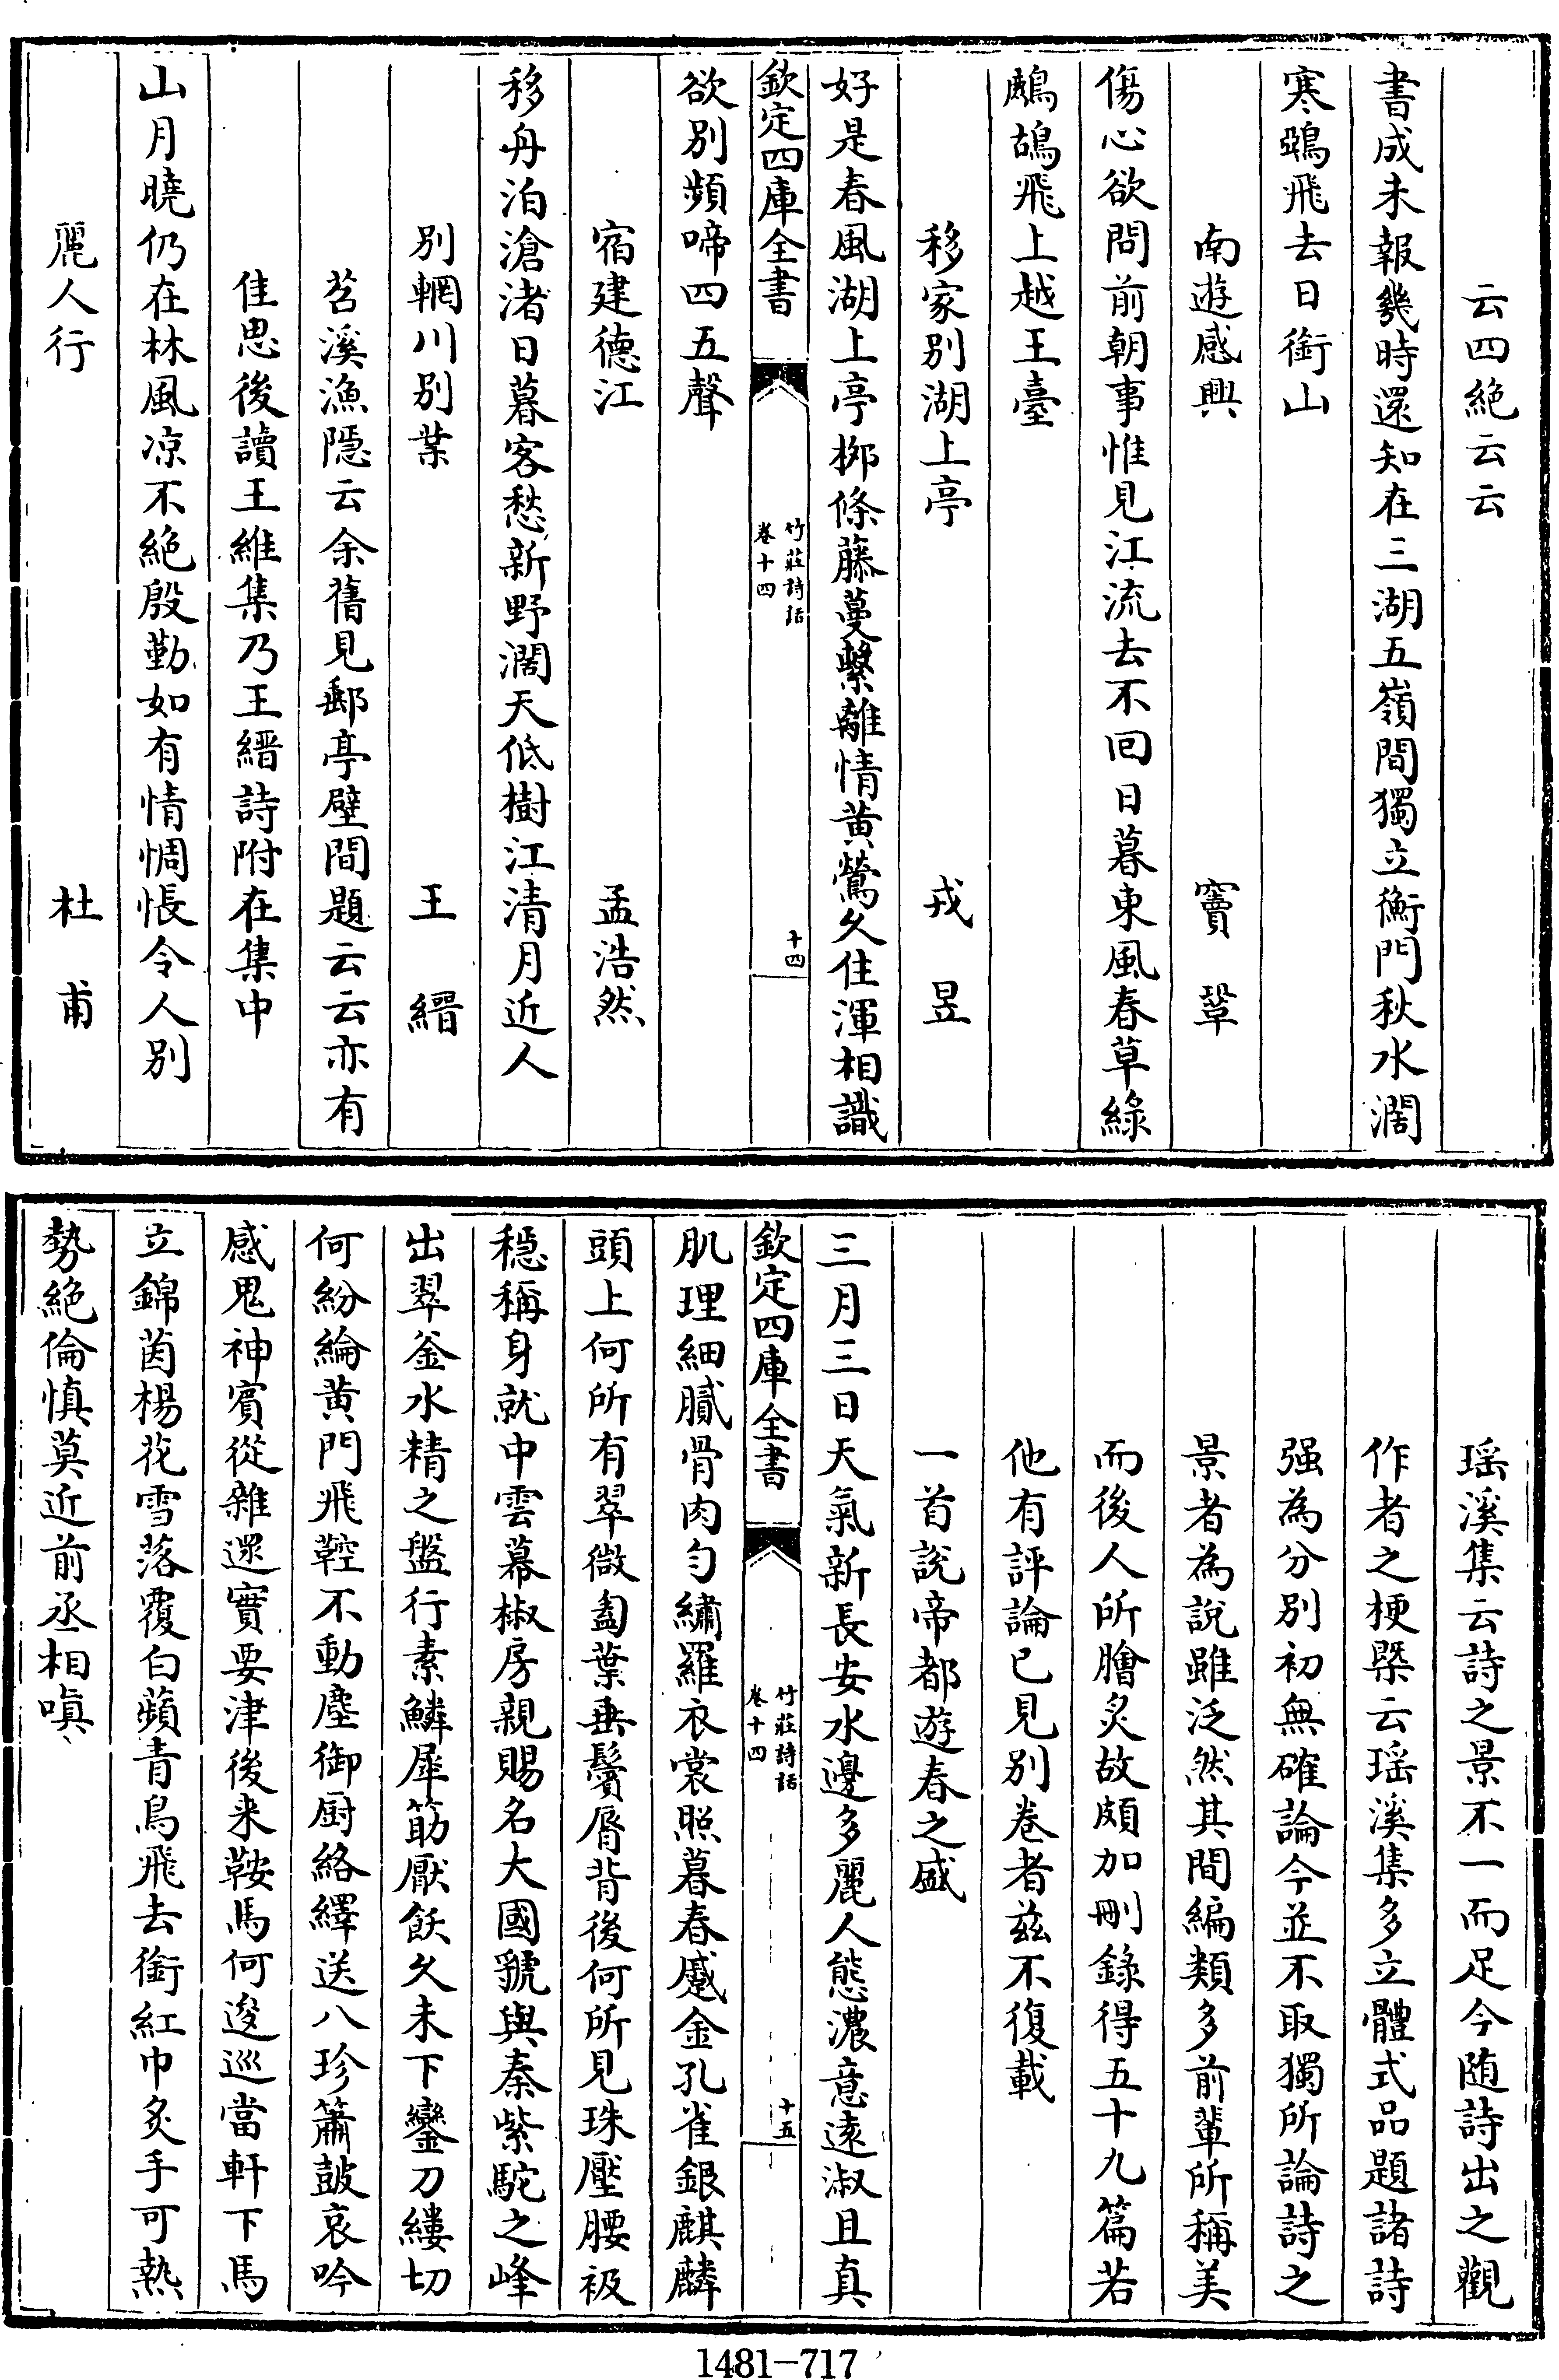 云四絶云云
書成未報幾時還知在三湖五嶺間獨立衡門秋水濶
寒鵶飛去日銜山
南遊感興
竇鞏
傷心欲問前朝事惟見江流去不回日暮東風春草綠
鷓鴣飛上越王臺
移家别湖上亭
戎昱
好是春風湖上亭栁條藤蔓繫離情黄鶯久住渾相識
欽定四庫全書
竹莊詩話
卷十四
十四
欲别頻啼四五聲
宿建德江
孟浩然
移舟泊滄渚日暮客愁新野濶天低樹江清月近人
别輞川别業
王縉
苕溪漁隠云余舊見郵亭壁間題云云亦有
佳思後讀王維集乃王縉詩附在集中
山月曉仍在林風凉不絶殷勤如有情惆悵令人别
麗人行
杜甫
瑶溪集云詩之景不一而足今随詩出之觀
作者之梗槩云瑶溪集多立體式品題諸詩
强為分别初無確論今並不取獨所論詩之
景者為說雖泛然其間編類多前輩所稱美
而後人所膾炙故頗加刪錄得五十九篇若
他有評論已見别巻者兹不復載
一首說帝都遊春之盛
三月三日天氣新長安水邊多麗人態濃意遠淑且真
欽定四庫全書
竹莊詩話
卷十四
十五
肌理細膩骨肉勻繡羅衣裳照暮春蹙金孔雀銀麒麟
頭上何所有翠微㔩葉垂鬢脣背後何所見珠壓腰衱
穏稱身就中雲幕椒房親賜名大國虢與秦紫駝之峰
出翠釜水精之盤行素鱗犀筯厭飫久未下鑾刀縷切
何紛綸黄門飛鞚不動塵御厨絡繹送八珍簫鼓哀吟
感鬼神賓從雜遝實要津後来鞍馬何逡巡當軒下馬
立錦茵楊花雪落覆白蘋青鳥飛去銜紅巾炙手可熱
勢絶倫慎莫近前丞相嗔
1481-717